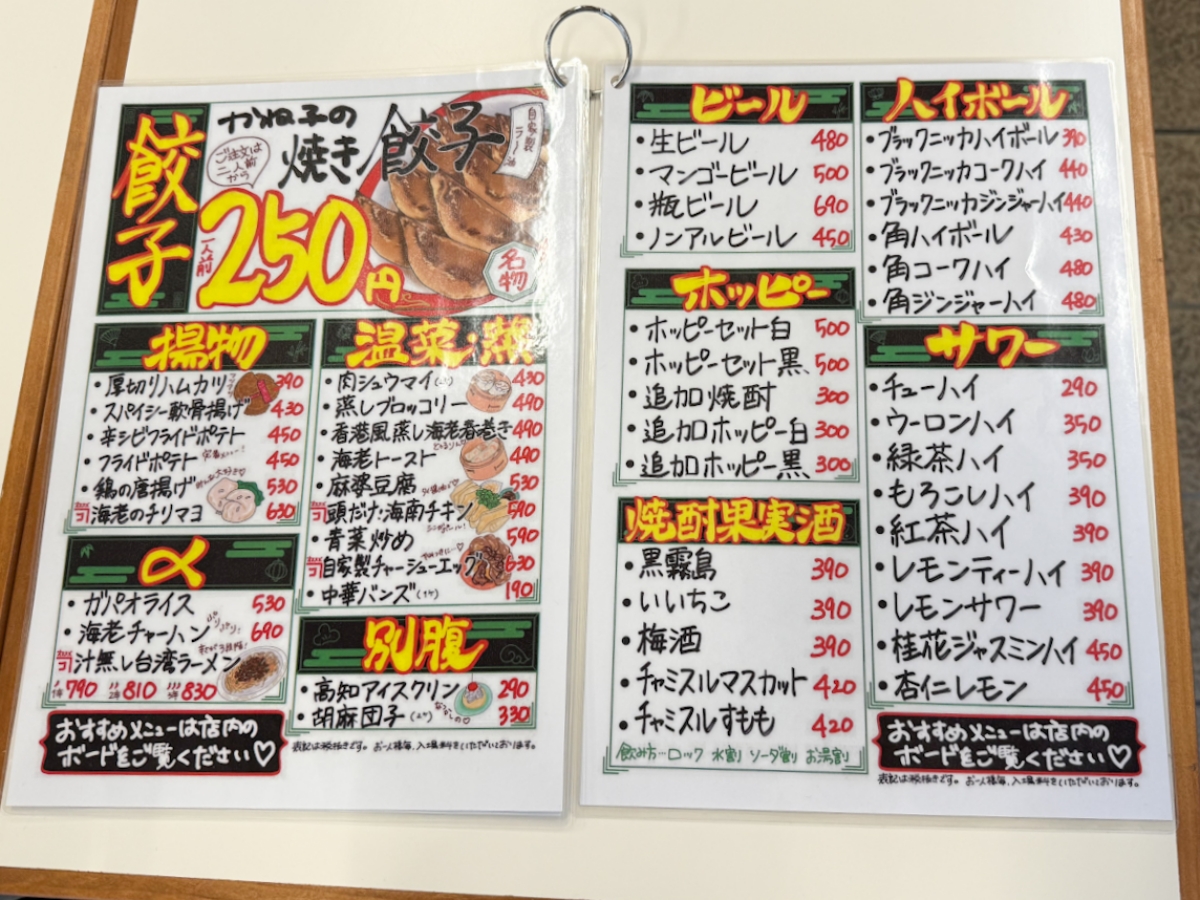 餃子
かね子の
焼き餃子
自家製
ラー油
ご注文は
二人前
から
一人前
250円
名物
揚物
・厚切りハムカツ 390
・スパイシー軟骨揚げ 430
・辛シビフライドポテト 450
・フライドポテト 450
・鶏の唐揚げ 530
海老のチリマヨ 630
〆
・ガパオライス 530
・海老チャーハン 690
汁無し台湾ラーメン
790 810 830
おすすめメニューは店内の
ボードをご覧ください♡
温菜・蒸
・肉シュウマイ 430
・蒸しブロッコリー 490
・香港風蒸し海老春巻き 490
・海老トースト 490
・麻婆豆腐 530
頭だけ・海南チキン 590
・青菜炒め 590
自家製チャーシューエッグ 630
・中華バンズ(1ケ) 190
別腹
・高知アイスクリン 290
・胡麻団子(2ケ) 330
表記は税抜きです。お一人様毎、入場料をいただいております。
ビール
・生ビール 480
・マンゴービール 500
・瓶ビール 690
・ノンアルビール 450
ホッピー
・ホッピーセット白 500
・ホッピーセット黒 500
・追加焼酎 300
・追加ホッピー白 300
・追加ホッピー黒 300
焼酎果実酒
・黒霧島 390
・いいちこ 390
・梅酒 390
・チャミスルマスカット 420
・チャミスルすもも 420
飲み方…ロック 水割り ソーダ割り お湯割り
ハイボール
・ブラックニッカハイボール 390
・ブラックニッカコークハイ 440
・ブラックニッカジンジャーハイ 440
・角ハイボール 430
・角コークハイ 480
・角ジンジャーハイ 480
サワー
・チューハイ 290
・ウーロンハイ 350
・緑茶ハイ 350
・もろこしハイ 390
・紅茶ハイ 390
・レモンティーハイ 390
・レモンサワー 390
・桂花ジャスミンハイ 450
・杏仁レモン 450
おすすめメニューは店内の
ボードをご覧ください♡
表記は税抜きです。お一人様毎、入場料をいただいております。